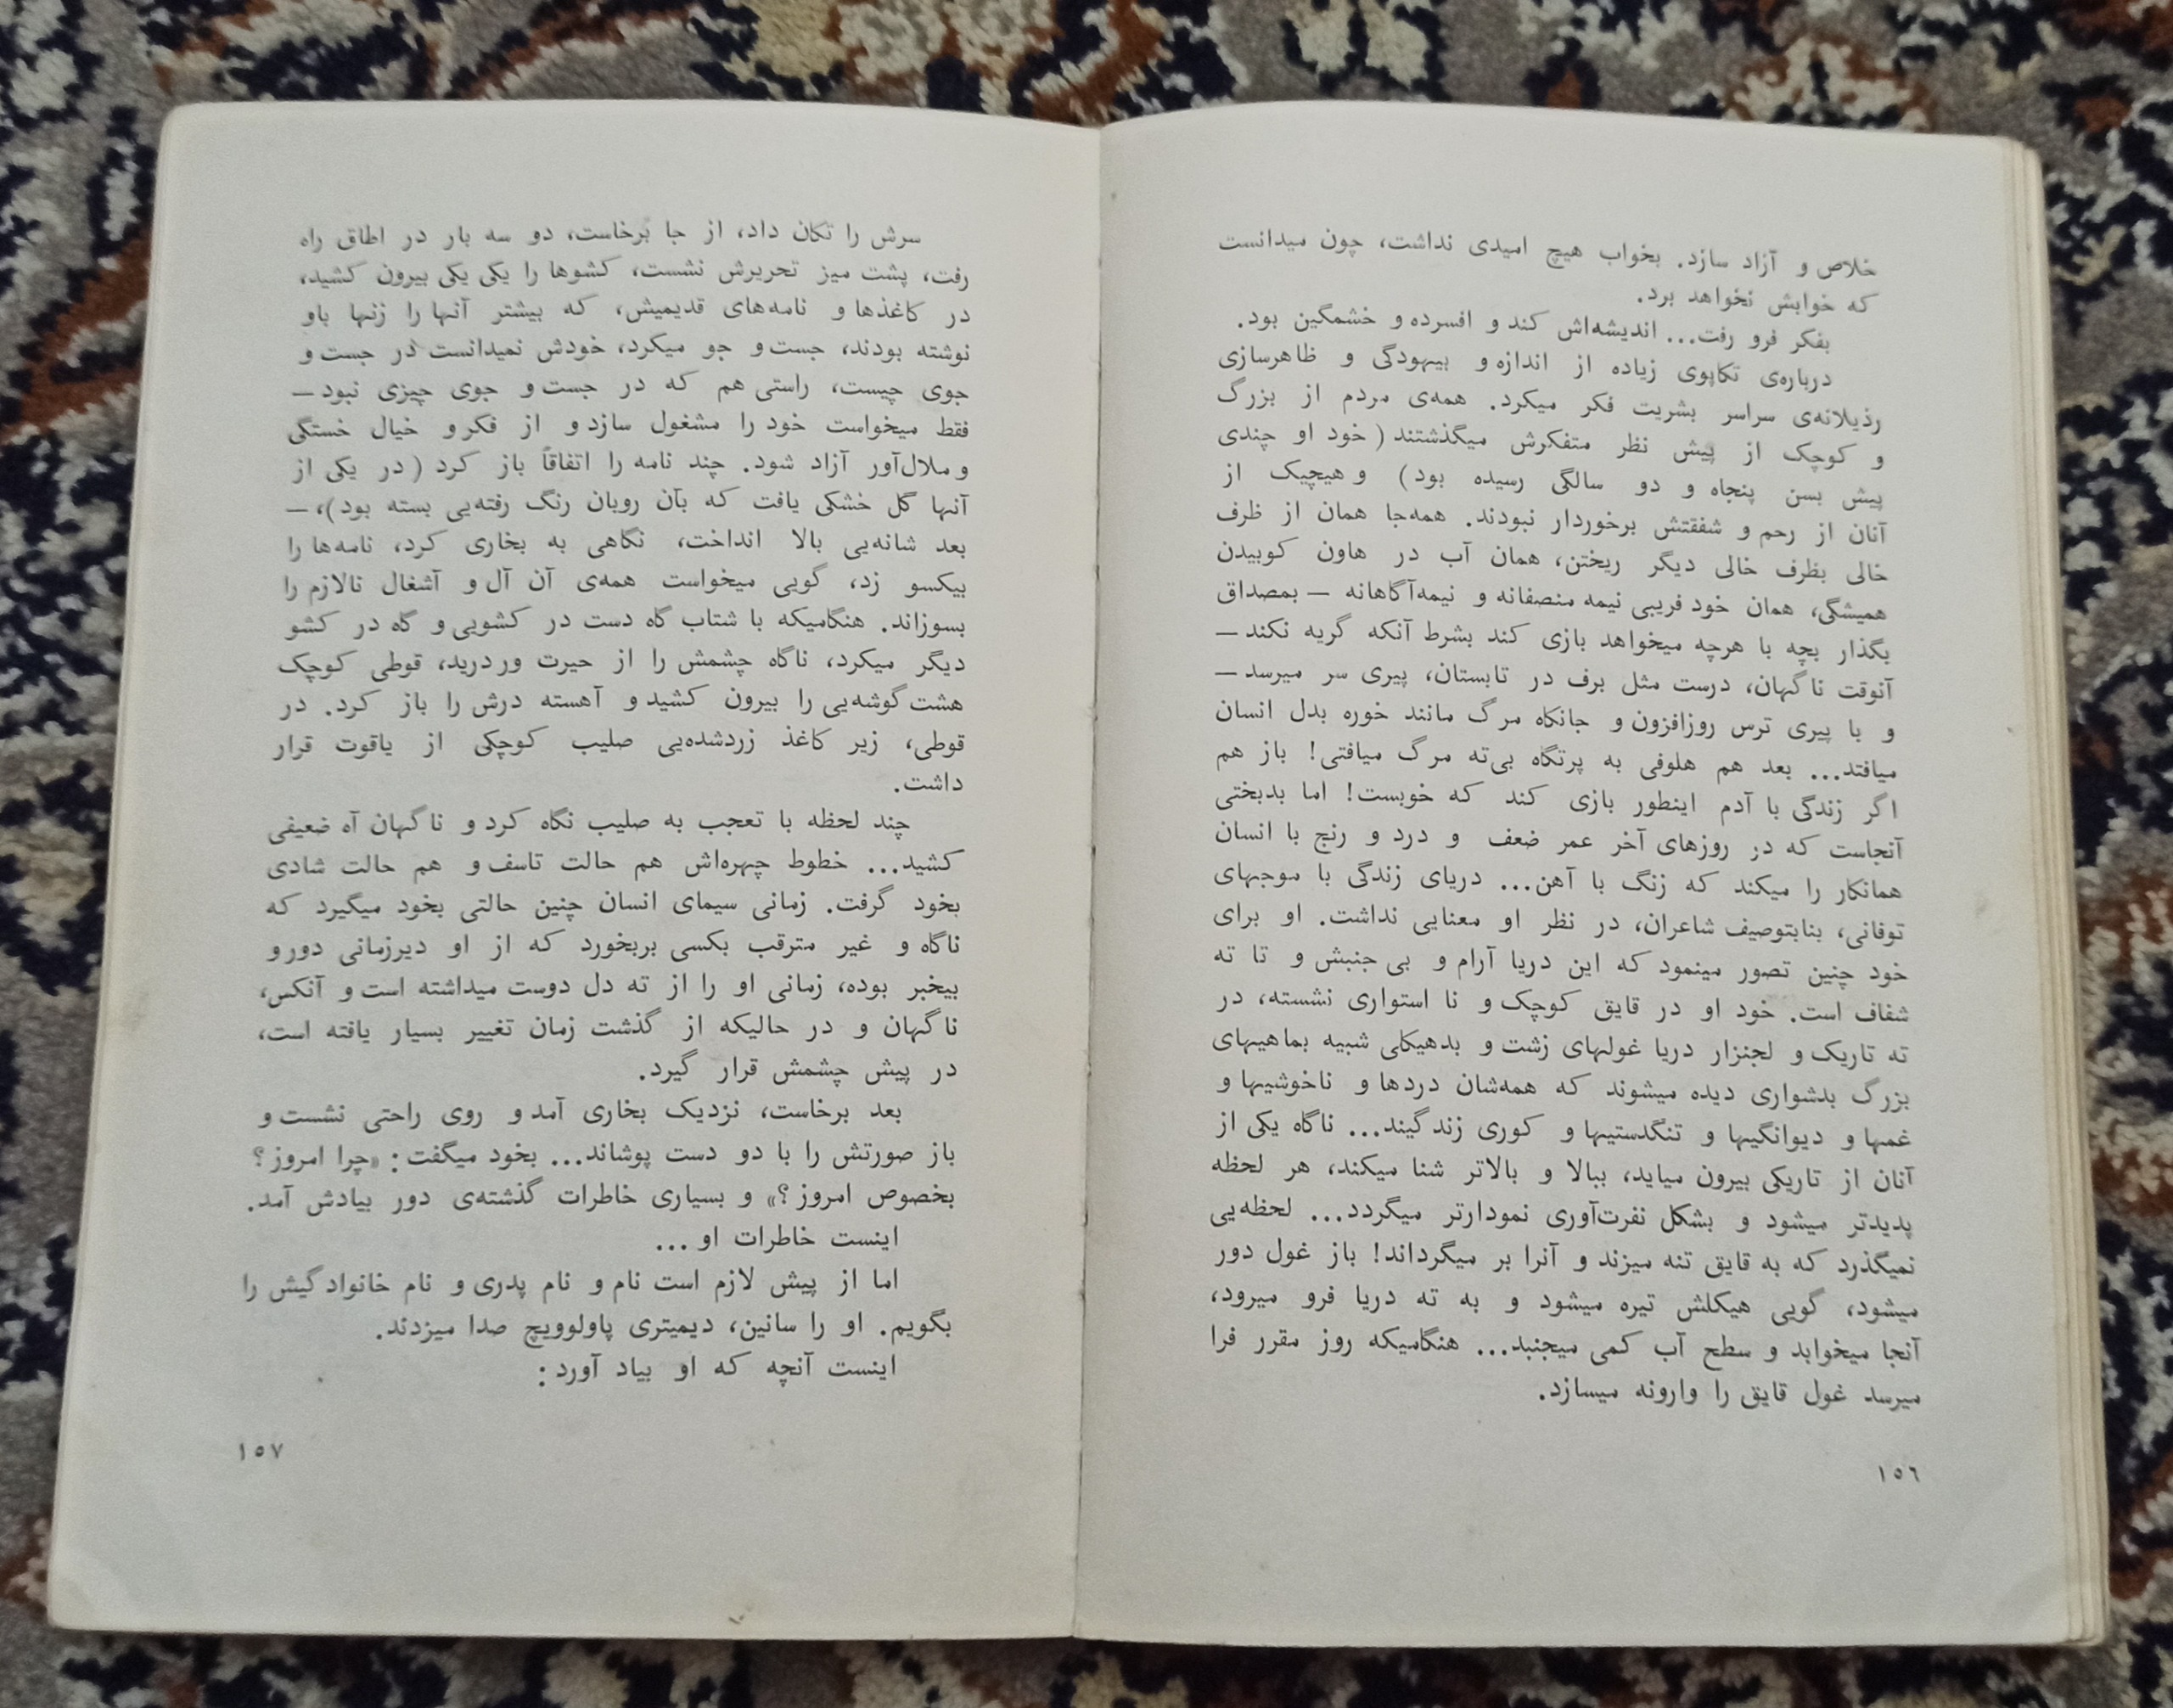 خلاص و آزاد سازد. بخواب هیچ امیدی نداشت، چون میدانست
که خوابش نخواهد برد.
بفکر فرو رفت... اندیشه‌اش کند و افسرده و خشمگین بود.
درباره‌ی تکاپوی زیاده از اندازه و بیهودگی و ظاهرسازی
رذیلانه‌ی سراسر بشریت فکر میکرد. همه‌ی مردم از بزرگ
و کوچک از پیش نظر متفکرش میگذشتند (خود او چندی
پیش بسن پنجاه و دو سالگی رسیده بود) و هیچیک از
آنان از رحم و شفقتش برخوردار نبودند. همه‌جا همان از ظرف
خالی بظرف خالی دیگر ریختن، همان آب در هاون کوبیدن
همیشگی، همان خود فریبی نیمه منصفانه و نیمه‌آگاهانه — بمصداق
بگذار بچه با هرچه میخواهد بازی کند بشرط آنکه گریه نکند —
آنوقت ناگهان، درست مثل برف در تابستان، پیری سر میرسد —
و با پیری ترس روزافزون و جانکاه مرگ مانند خوره بدل انسان
میافتد... بعد هم هلوفی به پرتگاه بی‌ته مرگ میافتی! باز هم
اگر زندگی با آدم اینطور بازی کند که خوبست! اما بدبختی
آنجاست که در روزهای آخر عمر ضعف و درد و رنج با انسان
همانکار را میکند که زنگ با آهن... دریای زندگی با موجهای
توفانی، بنابتوصیف شاعران، در نظر او معنایی نداشت. او برای
خود چنین تصور مینمود که این دریا آرام و بی جنبش و تا ته
شفاف است. خود او در قایق کوچک و نا استواری نشسته، در
ته تاریک و لجنزار دریا غولهای زشت و بدهیکلی شبیه بماهیهای
بزرگ بدشواری دیده میشوند که همه‌شان دردها و ناخوشیها و
غمها و دیوانگیها و تنگدستیها و کوری زندگیند... ناگاه یکی از
آنان از تاریکی بیرون میاید، ببالا و بالاتر شنا میکند، هر لحظه
پدیدتر میشود و بشکل نفرت‌آوری نمودارتر میگردد... لحظه‌یی
نمیگذرد که به قایق تنه میزند و آنرا بر میگرداند! باز غول دور
میشود، گویی هیکلش تیره میشود و به ته دریا فرو میرود،
آنجا میخوابد و سطح آب کمی میجنبد... هنگامیکه روز مقرر فرا
میرسد غول قایق را وارونه میسازد.
١٥٦
سرش را تکان داد، از جا برخاست، دو سه بار در اطاق راه
رفت، پشت میز تحریرش نشست، کشوها را یکی یکی بیرون کشید،
در کاغذها و نامه‌های قدیمیش، که بیشتر آنها را زنها باو
نوشته بودند، جست و جو میکرد، خودش نمیدانست در جست و
جوی چیست، راستی هم که در جست و جوی چیزی نبود —
فقط میخواست خود را مشغول سازد و از فکر و خیال خستگی
و ملال‌آور آزاد شود. چند نامه را اتفاقاً باز کرد (در یکی از
آنها گل خشکی یافت که بآن روبان رنگ رفته‌یی بسته بود)، —
بعد شانه‌یی بالا انداخت، نگاهی به بخاری کرد، نامه‌ها را
بیکسو زد، گویی میخواست همه‌ی آن آل و آشغال نالازم را
بسوزاند. هنگامیکه با شتاب گاه دست در کشویی و گاه در کشو
دیگر میکرد، ناگاه چشمش را از حیرت وردرید، قوطی کوچک
هشت گوشه‌یی را بیرون کشید و آهسته درش را باز کرد. در
قوطی، زیر کاغذ زردشده‌یی صلیب کوچکی از یاقوت قرار
داشت.
چند لحظه با تعجب به صلیب نگاه کرد و ناگهان آه ضعیفی
کشید... خطوط چهره‌اش هم حالت تاسف و هم حالت شادی
بخود گرفت. زمانی سیمای انسان چنین حالتی بخود میگیرد که
ناگاه و غیر مترقب بکسی بربخورد که از او دیرزمانی دور و
بیخبر بوده، زمانی او را از ته دل دوست میداشته است و آنکس،
ناگهان و در حالیکه از گذشت زمان تغییر بسیار یافته است،
در پیش چشمش قرار گیرد.
بعد برخاست، نزدیک بخاری آمد و روی راحتی نشست و
باز صورتش را با دو دست پوشاند... بخود میگفت: «چرا امروز؟
بخصوص امروز؟» و بسیاری خاطرات گذشته‌ی دور بیادش آمد.
اینست خاطرات او ...
اما از پیش لازم است نام و نام پدری و نام خانوادگیش را
بگویم. او را سانین، دیمیتری پاولوویچ صدا میزدند.
اینست آنچه که او بیاد آورد:
١٥٧